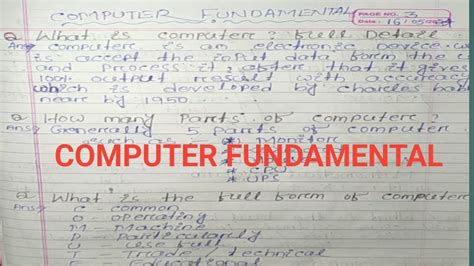 COMPUTER FUNDAMENTAL
PAGE NO. 3
Date: 16/05/
Q What is computer? full Detail
Ans computer is an electronic device
is accept the input data form the
and process it, after that it gives
100% output result with accuracy
which is developed by charles bab
near by 1950.
Q How many Parts of computer?
Ans Generally 5 Parts of computer
such as * Monitor
COMPUTER FUNDAMENTAL
* CPU
* UPS
Q What is the full form of computer
Ans C - common
O - operating
M - Machine
P - Particularly
U - use full
T - Trade / technical
E - Educational